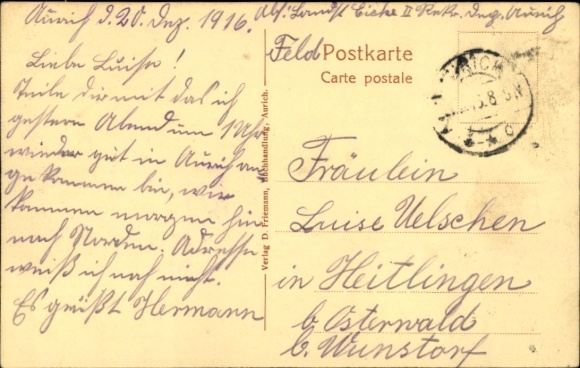 Aurich d. 20. Dez. 1916.
Abs: Landst Eicke II Rekr. Dep. Aurich
Feld Postkarte
Carte postale
Liebe Luise!
Teile dir mit das ich
gestern Abend um 1 Uhr
wieder gut in Aurich an
gekommen bin, wir
kommen morgen hin
nach Norden. Adresse
weiß ich noch nicht.
Es grüßt Hermann
Verlag D. Friemann, Buchhandlung, Aurich.
AURICH
8-9N
Fräulein
Luise Uelschen
in Heitlingen
b. Osterwald
b. Wunstorf